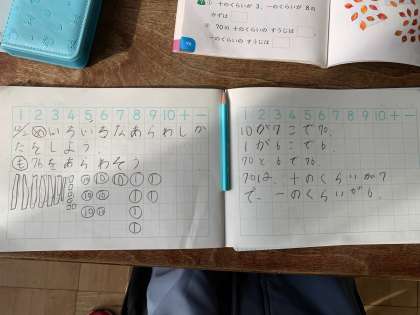 ① 十のくらいが 3、一のくらいが 8の
かずは
② 70の 十のくらいの すうじは
一のくらいの すうじは
1 2 3 4 5 6 7 8 9 10 + −
め いろいろなあらわしか
たをしよう
も 76をあらわそう
10 10 10 1 1
10 10 1 1
10 10 1
1
1 2 3 4 5 6 7 8 9 10 + −
10が7こで70。
1が6こで6。
70と6で76。
70は、十のくらいが7
で、一のくらいが6。